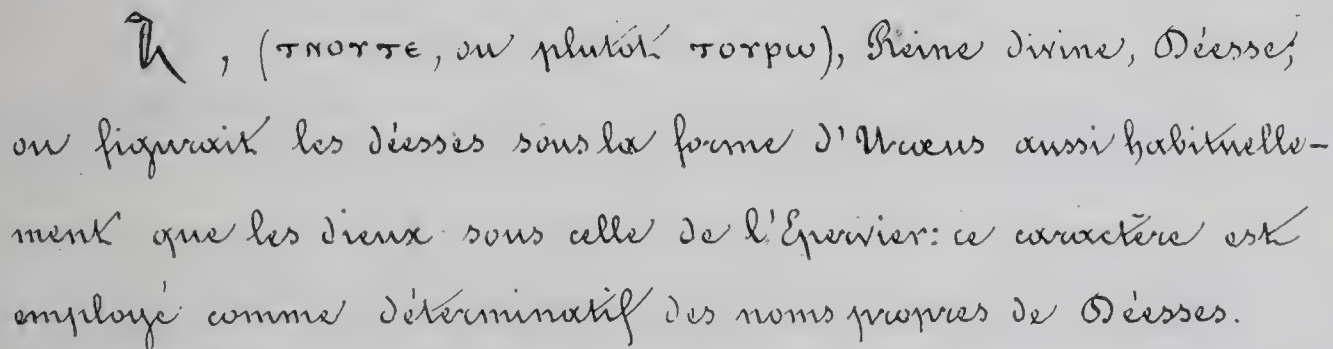 𓆗, (ⲧⲛⲟⲩⲧⲉ, ou plutôt ⲧⲟⲩⲣⲱ), Reine divine, Déesse;
on figurait les déesses sous la forme d'Uræus aussi habituelle-
ment que les dieux sous celle de l'Epervier: ce caractère est
employé comme déterminatif des noms propres de Déesses.